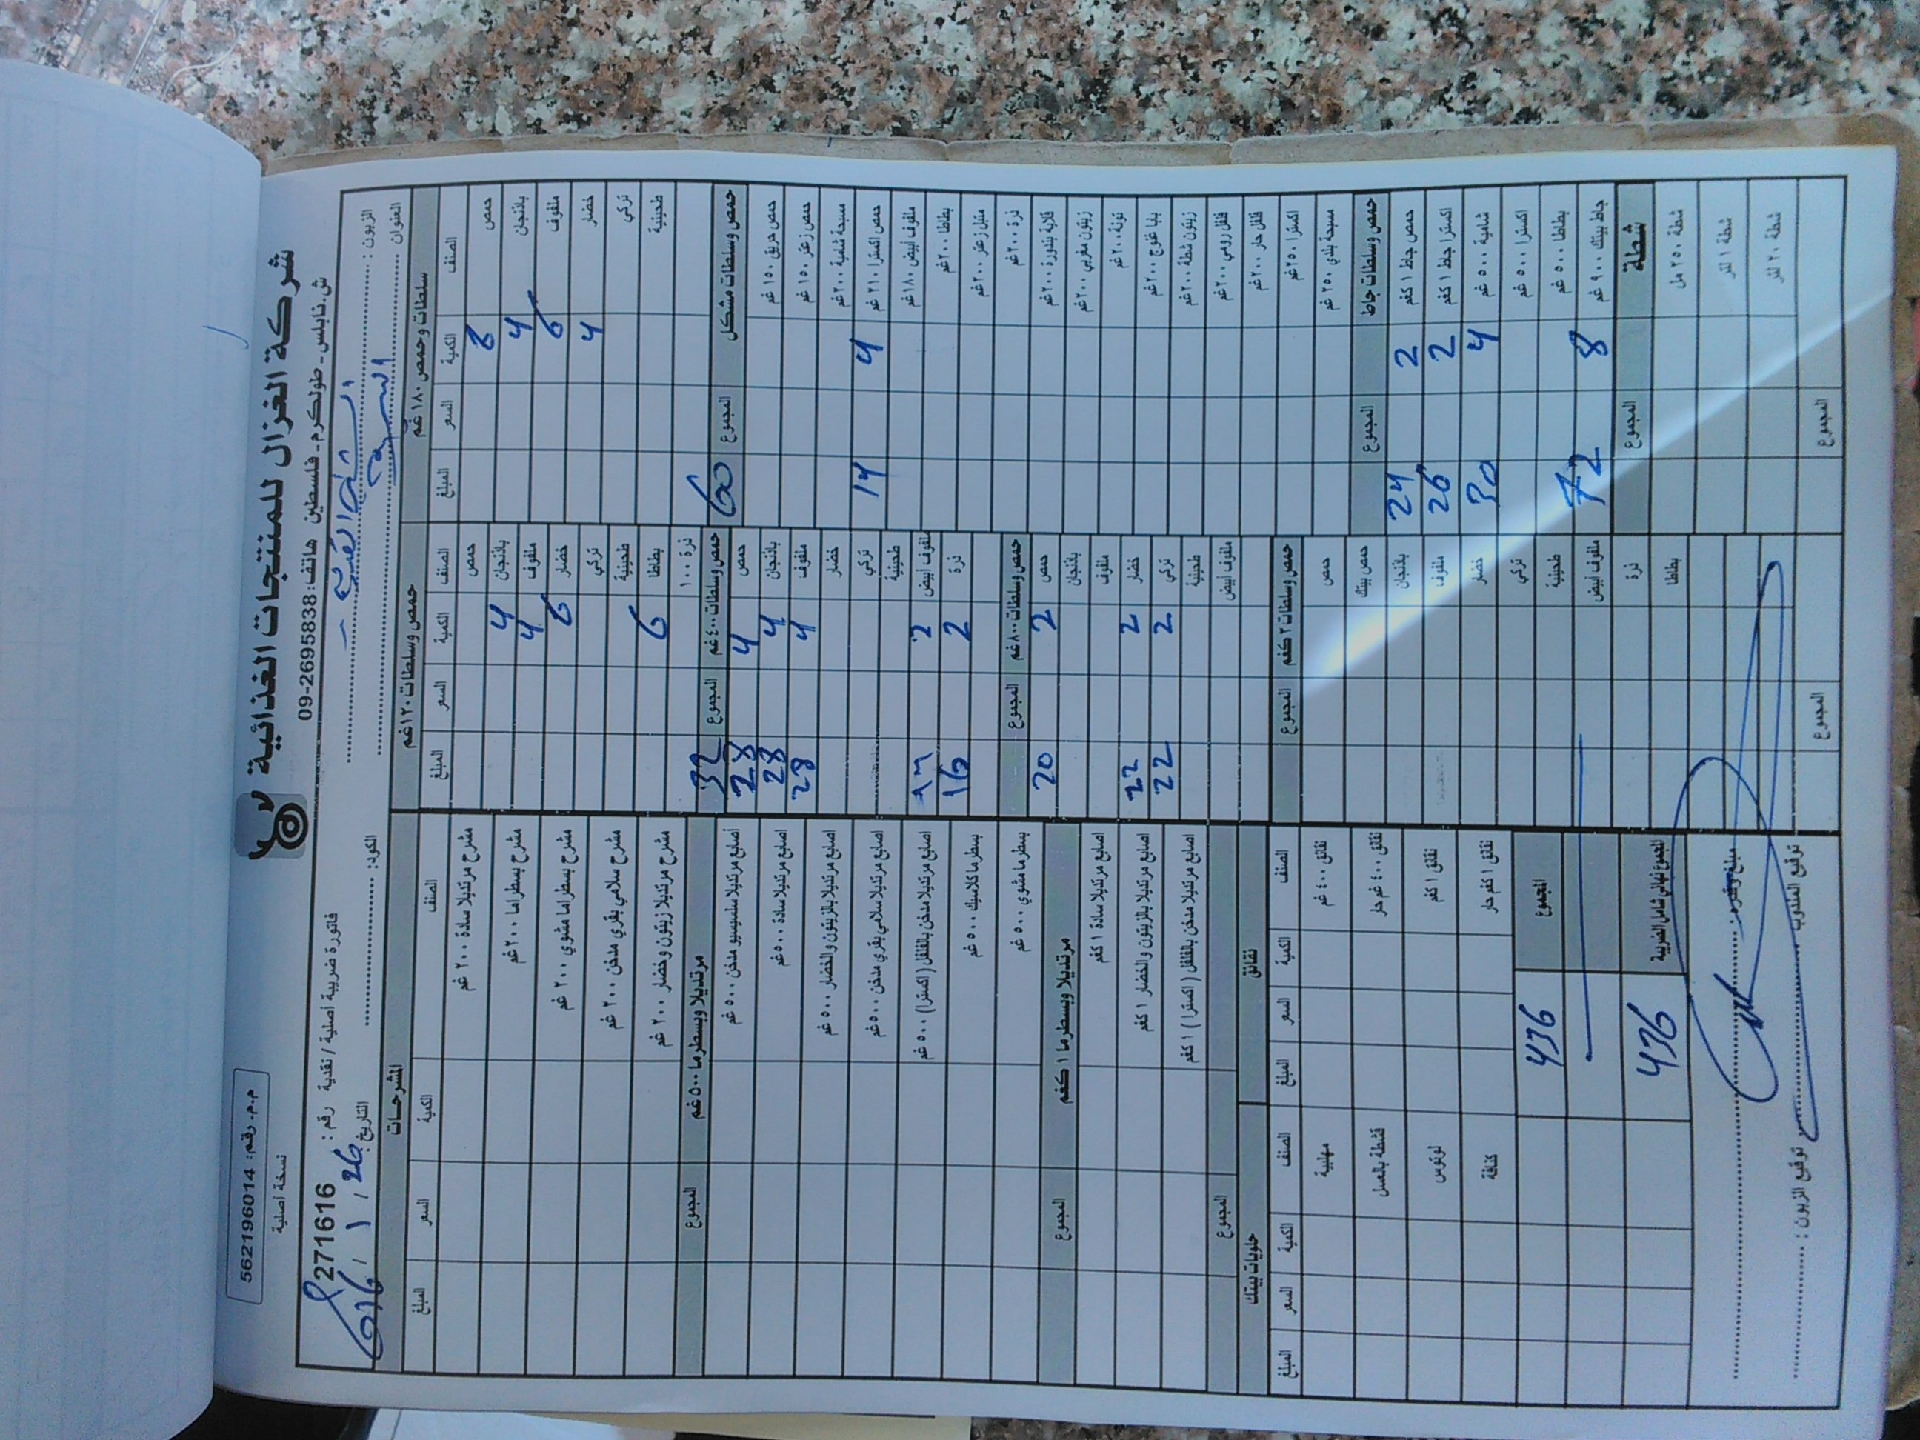 شركة الغزال للمنتجات الغذائية
ش. نابلس - طولكرم - فلسطين هاتف: 09-2695838
م.م. رقم: 562196014
نسخة أصلية
فاتورة ضريبية أصلية / نقدية رقم: 2771616
الزبون:
العنوان
الكود:
التاريخ 26 / 1 /
سلطات و حمص ١٨٠ غم
الصنف الكمية السعر المبلغ
حمص 8
باذنجان 4
ملفوف 6
خضار 4
تركي
طحينية
60
حمص وسلطات مشكل المجموع
حمص حريق ١٥٠ غم
حمص زعتر ١٥٠ غم
مسبحة شعبية ٢٠٠ غم
حمص اكسترا ٢١٠ غم 4 14
ملفوف ابيض ١٨٠ غم
بطاطا ٢٠٠ غم
متبل زعتر ٢٠٠ غم
ذرة ٢٠٠ غم
قلاية بندورة ٢٠٠ غم
زيتون مغربي ٢٠٠ غم
تونة ٢٠٠ غم
بابا غنوج ٢٠٠ غم
زيتون شطة ٢٠٠ غم
فلفل رومي ٢٠٠ غم
فلفل حار ٢٠٠ غم
اكسترا ٢٥٠ غم
مسبحة بلدي ٢٥٠ غم
حمص وسلطات جاط المجموع
حمص جاط ١ كغم 2 24
اكسترا جاط ١ كغم 2 26
شامية ٥٠٠ غم 4 30
اكسترا ٥٠٠ غم
بطاطا ٥٠٠ غم
جاط بيتك ٩٠٠ غم 8 72
شطة المجموع
شطة ٢٥٠ مل
شطة ١ لتر
شطة ٢٠ لتر
المجموع
حمص وسلطات ١٢٠ غم
الصنف الكمية السعر المبلغ
حمص
باذنجان 4
ملفوف 4
خضار 6
تركي
طحينية
بطاطا 6
ذرة ١٠٠
32
حمص وسلطات ٤٠٠ غم المجموع
حمص 4 28
باذنجان 4 28
ملفوف 4 28
خضار
تركي
طحينية
ملفوف ابيض 2
ذرة 2 16
حمص وسلطات ٨٠٠ غم المجموع
حمص 2 20
باذنجان
ملفوف
خضار 2 22
تركي 2 22
طحينية
ملفوف ابيض
حمص وسلطات ٢ كغم المجموع
حمص
حمص بيتك
باذنجان
ملفوف
خضار
تركي
طحينية
ملفوف ابيض
ذرة
بطاطا
المجموع
المشرحات
الصنف الكمية السعر المبلغ
مشرح مرتديلا سادة ٢٠٠ غم
مشرح بسطراما ٢٠٠ غم
مشرح بسطراما مشوي ٢٠٠ غم
مشرح سلامي بقري مدخن ٢٠٠ غم
مشرح مرتديلا زيتون وخضار ٢٠٠ غم
مرتديلا وبسطرما ٥٠٠ غم المجموع
أصابع مرتديلا سلسيسيو مدخن ٥٠٠ غم
اصابع مرتديلا سادة ٥٠٠ غم
اصابع مرتديلا بالزيتون والخضار ٥٠٠ غم
اصابع مرتديلا سلامي بقري مدخن ٥٠٠ غم
اصابع مرتديلا مدخن بالفلفل (اكسترا) ٥٠٠ غم
بسطرما كلاسيك ٥٠٠ غم
بسطرما مشوي ٥٠٠ غم
مرتديلا وبسطرما ١ كغم المجموع
اصابع مرتديلا سادة ١ كغم
اصابع مرتديلا بالزيتون والخضار ١ كغم
اصابع مرتديلا مدخن بالفلفل (اكسترا) ١ كغم
المجموع
نقانق
الصنف الكمية السعر المبلغ
نقانق ٤٠٠ غم
نقانق ٤٠٠ غم حار
نقانق ١ كغم
نقانق ١ كغم حار
حلويات بيتك
الصنف الكمية السعر المبلغ
مهلبية
قشطة بالعسل
لوتوس
كنافة
المجموع 436
المجموع نهائي شامل الضريبة 436
مبلغ وقدره:
توقيع المندوب
توقيع الزبون: